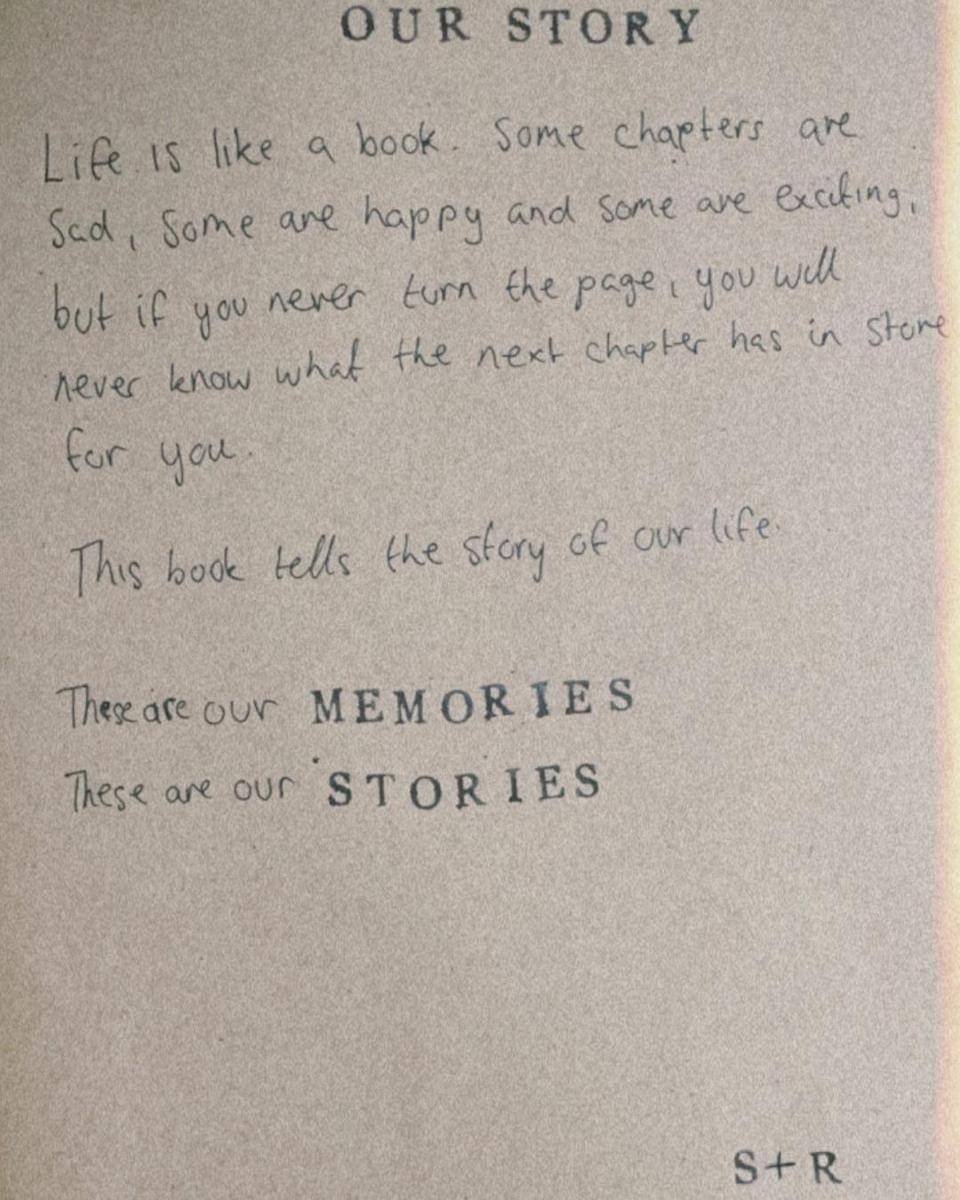 OUR STORY
Life is like a book. Some chapters are
Sad, Some are happy and some are exciting,
but if you never turn the page, you will
never know what the next chapter has in store
for you.
This book tells the story of our life.
These are our MEMORIES
These are our STORIES
S+R